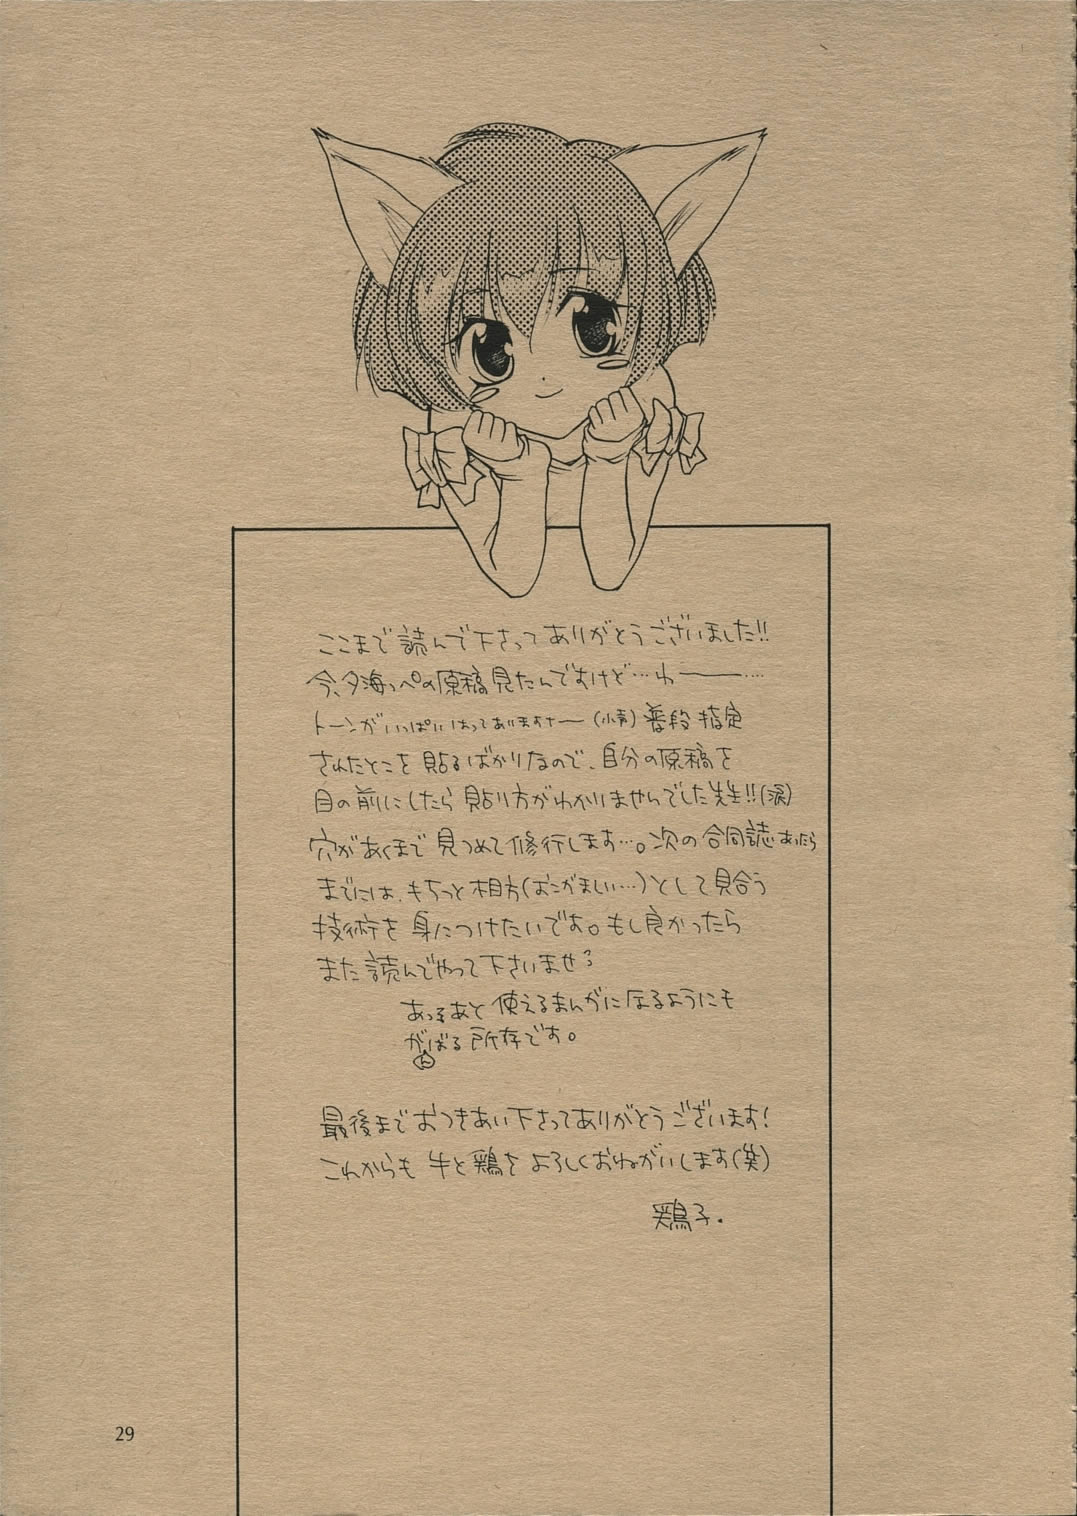 ここまで読んで下さってありがとうございました!!
今、夕海っぺの原稿見たんですけど…わ――――…
トーンがいっぱいはってありますナー(小声)普段指定
されたとこを貼るばかりなので、自分の原稿を
目の前にしたら貼り方がわかりませんでした先生!!(涙)
穴があくまで見つめて修行します…。次の合同誌あったら
までには、もちっと相方(おこがましい…)として見合う
技術を身につけたいです。もし良かったら
また読んでやって下さいませ
あっあと使えるまんがになるようにも
がんばる所存です。
最後までおつきあい下さってありがとうございます!
これからも牛と鶏をよろしくおねがいします(笑)
鶏子.
29